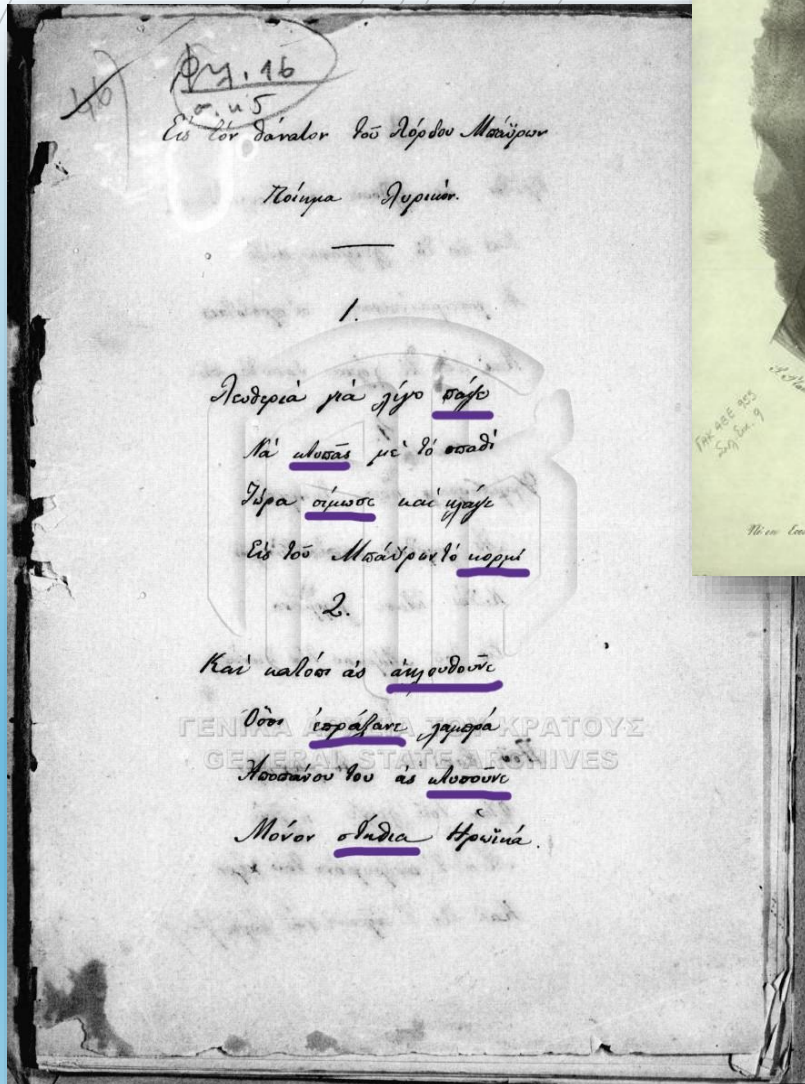 46
Φυλ. 16
Εἰς τὸν θάνατον τοῦ Λόρδου Μπάϋρων
Ποίημα Λυρικόν.
1.
Λευθεριὰ γιὰ λίγο πάψε
Νὰ κτυπᾶς μὲ τὸ σπαθὶ
Τώρα σίμωσε καὶ κλάψε
Εἰς τοῦ Μπάϋρων τὸ κορμὶ
2.
Καὶ κατόπι ἂς ἀκλουθοῦνε
Ὅσοι ἐπράξανε λαμπρὰ
Ἀποπάνου του ἂς κτυποῦνε
Μόνον στήθια Ἡρωϊκά.
ΓΕΝΙΚΑ ΑΡΧΕΙΑ ΤΟΥ ΚΡΑΤΟΥΣ
GENERAL STATE ARCHIVES
ΓΑΚ ΑΕΕ 955